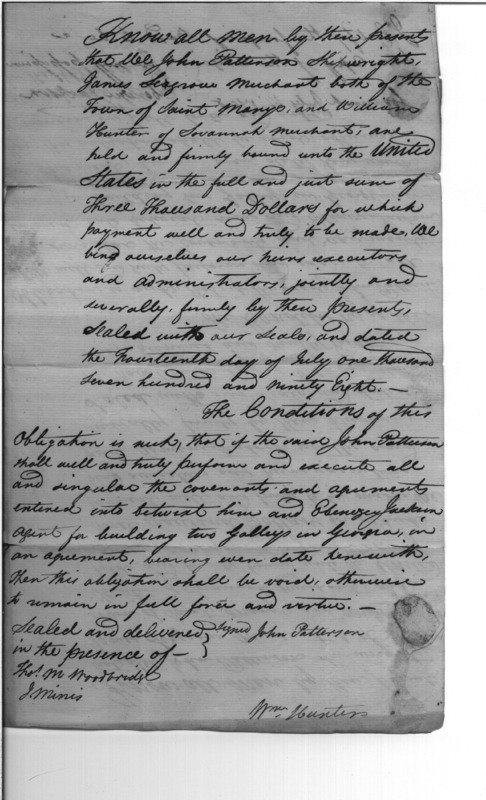 Know all men by these presents
that We John Patterson Shipwright,
James Seagrove Merchant both of the
Town of Saint Marys, and William
Hunter of Savannah Merchant, are
held and firmly bound unto the United
States in the full and just sum of
Three thousand Dollars for which
payment well and truly to be made, We
bind ourselves our heirs executors
and administrators, jointly and
severally, firmly by these presents,
Sealed with our seals, and dated
the Fourteenth day of July one thousand
seven hundred and ninety Eight. —
The Conditions of this
Obligation is such, that if the said John Patterson
shall well and truly perform and execute all
and singular the covenants and agreements
entered into betwixt him and Ebenezer Jackson
agent for building two Galleys in Georgia, in
an agreement, bearing even date herewith,
then this obligation shall be void, otherwise
to remain in full force and virtue. —
Sealed and delivered } Signed John Patterson
in the presence of —
Thos. M Woodbridge
J Minis
Wm. Hunter